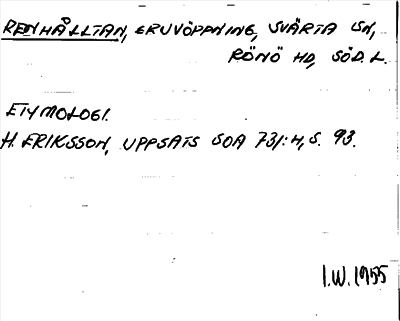 RENHÅLLTAN, GRUVÖPPNING, SVÄRTA SN,
RÖNÖ HD, SÖD. L.
ETYMOLOGI.
H. ERIKSSON, UPPSATS SOA 731:4, S. 93.
I.W. 1955